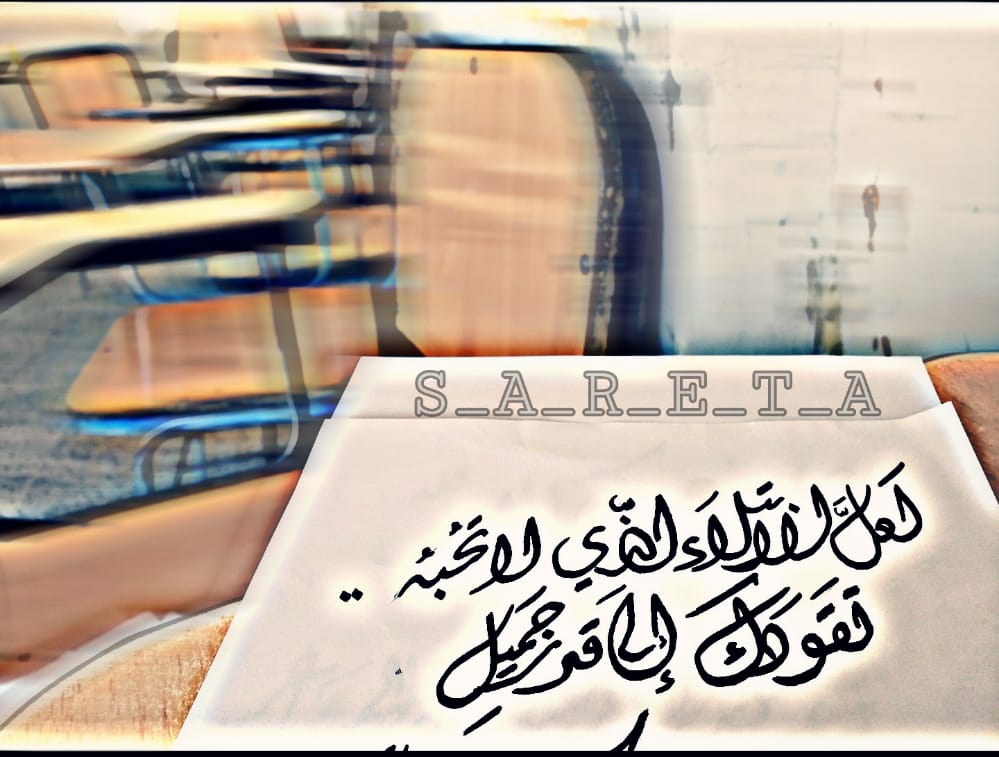 S_A_R_E_T_A
لَعلَّ الابتلاَء الذّي لا تُحبُه ..
تَقودكَ إلى قَدر جَميلِ